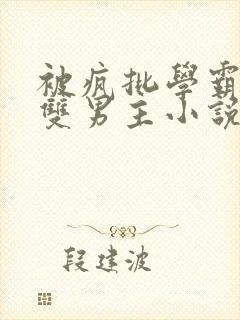 被疯批學霸
雙男主小說
段建波